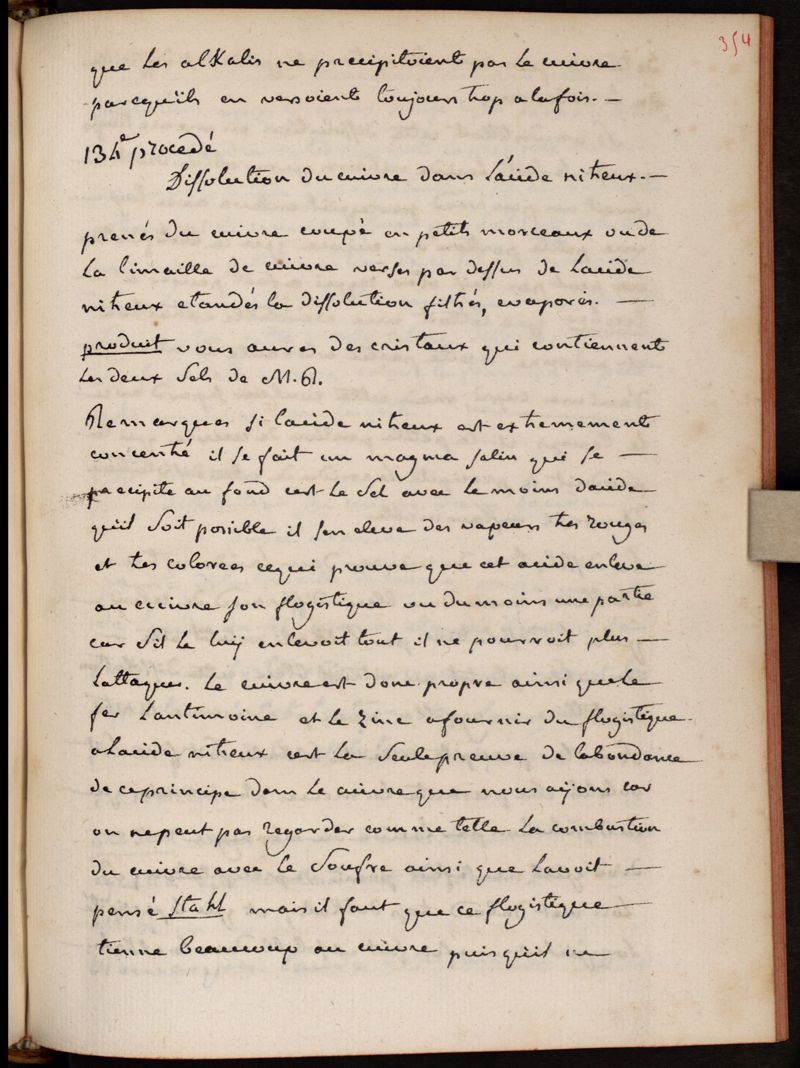 354
que les alkalis ne precipitoient pas le cuivre
parcequ'ils en versoient toujours trop alafois. —
134e procedé
Dissolution du cuivre dans L'acide nitreux. —
prenés du cuivre coupé en petits morceaux ou de
La limaille de cuivre versés par dessus de Lacide
nitreux etandés la dissolution filtrés, evaporés. —
produit vous aures des cristaux qui contiennent
les deux sels de M. R.
Remarques si lacide nitreux est extremement
concentré il se fait un magma salin qui se —
precipite au fond cest le sel avec le moins dacide
qu'il soit possible il sen eleve des vapeurs tres rouges
et tres colorees cequi prouve que cet acide enleve
au cuivre son flogistique ou dumoins une partie
car s'il le luij enlevoit tout il ne pourroit plus —
Lattaquer. Le cuivre est donc propre ainsi que le
fer Lantimoine et le zinc afournir du flogistique
alacide nitreux cest la seule preuve de labondance
de ceprincipe dans le cuivre que nous aijons car
on nepeut pas regarder comme telle la combustion
du cuivre avec le soufre ainsi que Lavoit —
pensé Stahl mais il faut que ce flogistique
tienne beaucoup au cuivre puisqu'il ne